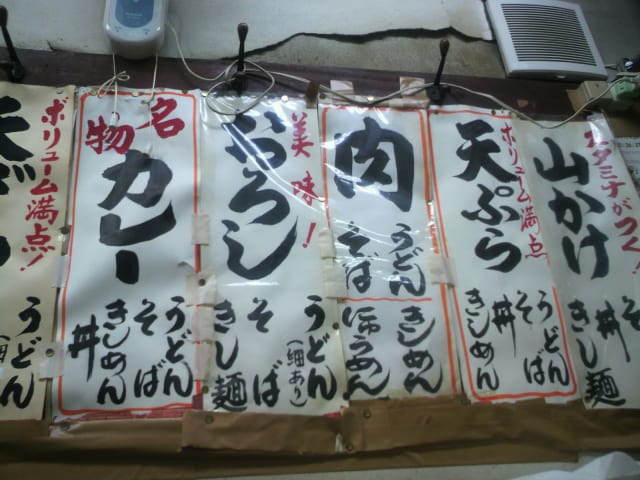 ボリューム満点!
うどん
名物
カレー
うどん
そば
きしめん
丼
美味!
おろし
うどん
(細あり)
そば
きし麺
肉
うどん
そば
きしめん
にゅうめん
ボリューム満点
天ぷら
うどん
そば
丼
きしめん
スタミナがつく!
山かけ
そ
丼
きし麺